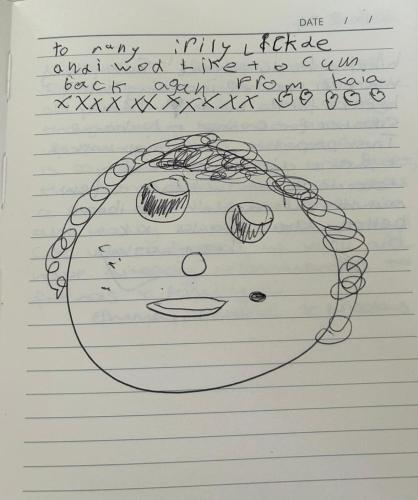 DATE / /
to nany iRily Lickde
andi wod Like to cum
back agan From Kaia
xxxx xx xxxxxx